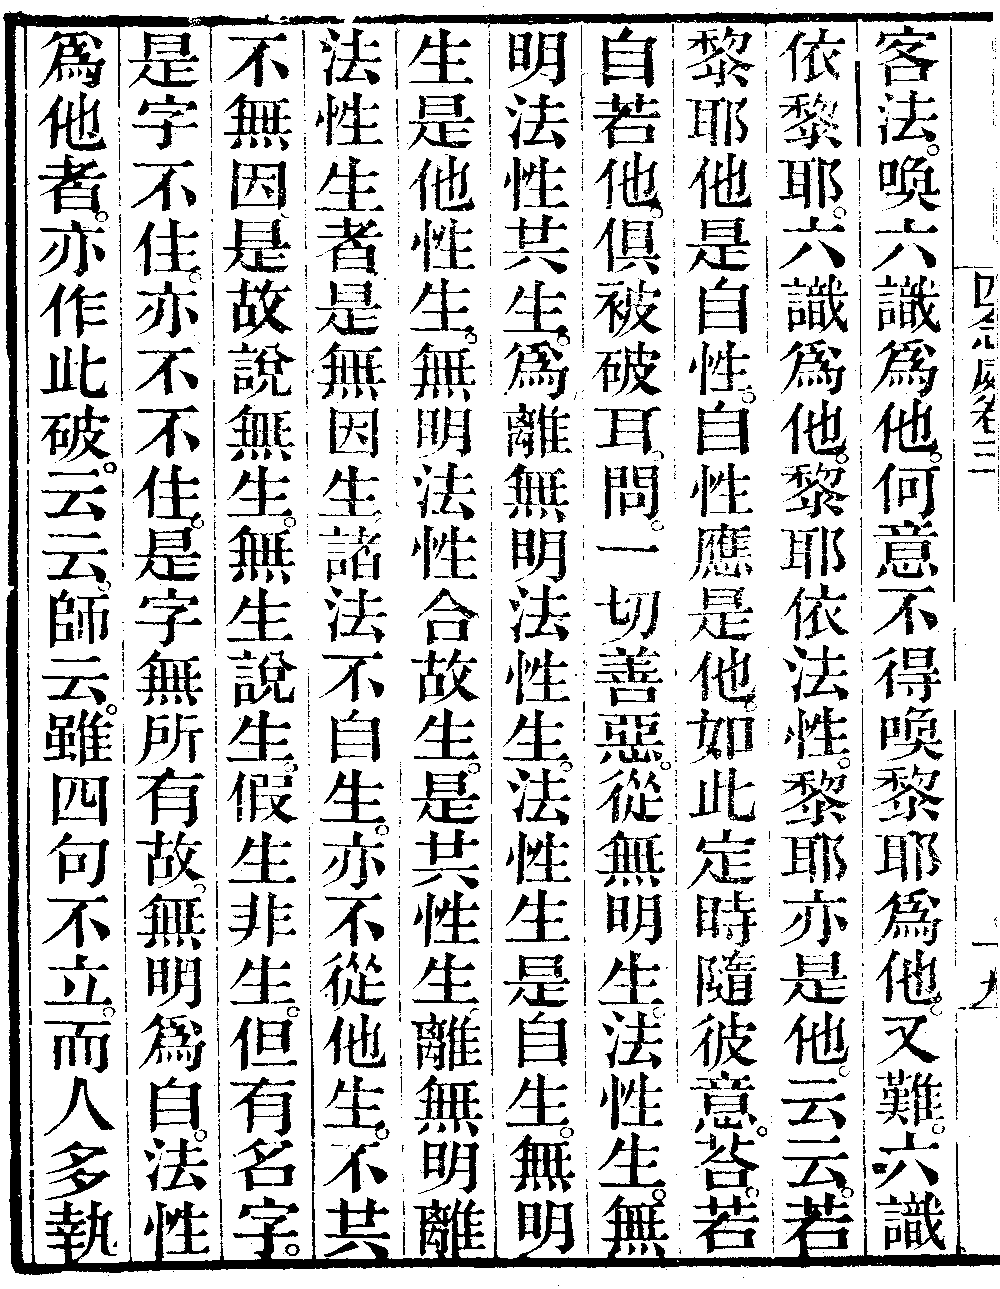 客法。喚六識爲他。何意不得喚黎耶爲他。又難。六識
依黎耶。六識爲他。黎耶依法性。黎耶亦是他。云云。若
黎耶他是自性。自性應是他。如此定時隨彼意。荅。若
自若他。俱被破耳。問。一切善惡。從無明生。法性生。無
明法性共生。爲離無明法性生。法性生是自生。無明
生是他性生。無明法性合故生。是共性生。離無明離
法性生者。是無因生。諸法不自生。亦不從他生。不共
不無因。是故說無生。無生說生。假生非生。但有名字。
是字不住。亦不不住。是字無所有故。無明爲自。法性
爲他者。亦作此破。云云。師云。雖四句不立。而人多執
四念處卷三
十九